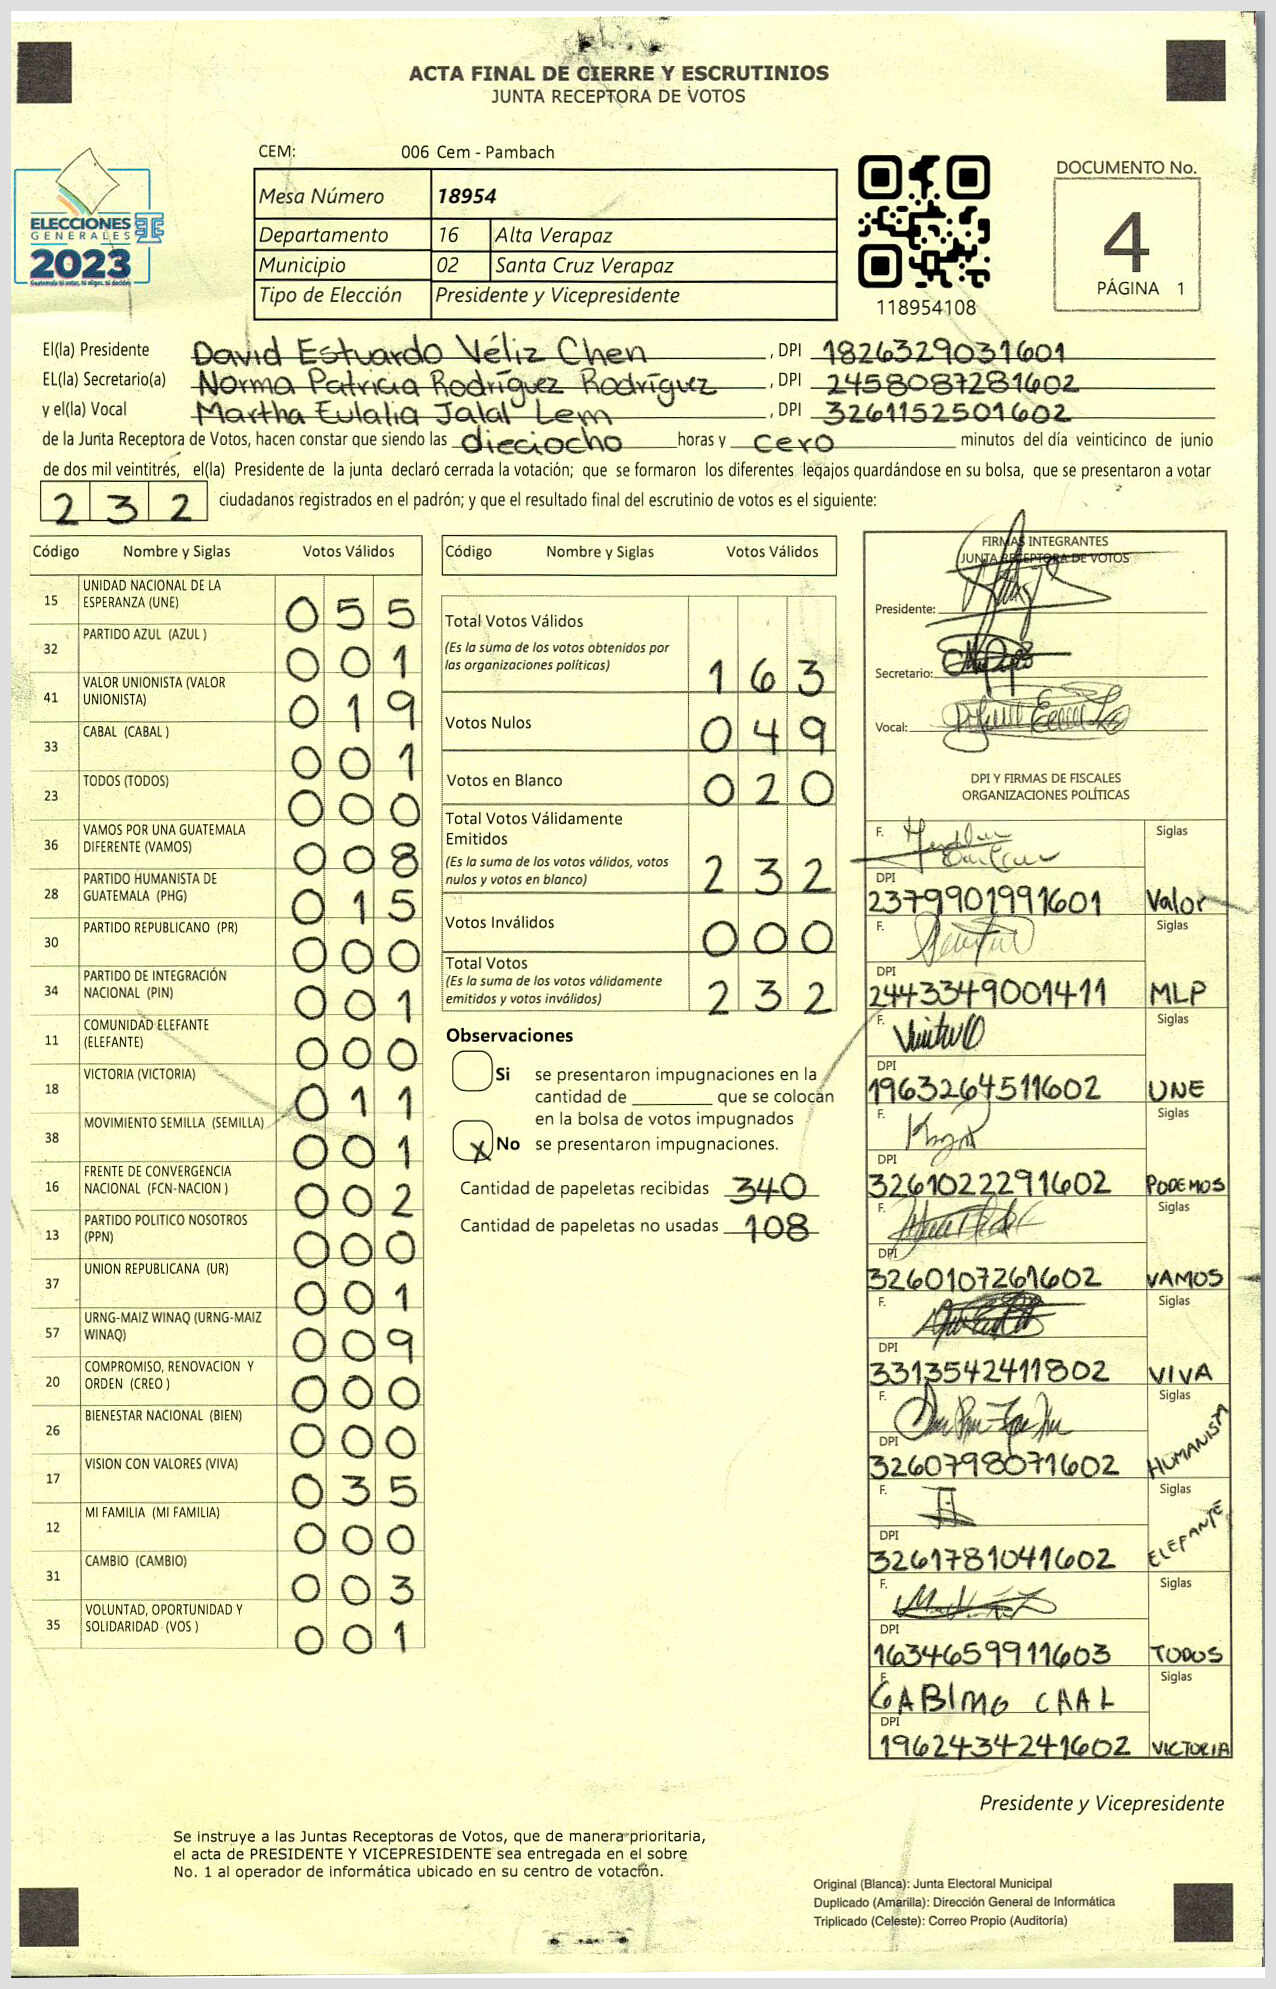 ACTA FINAL DE CIERRE Y ESCRUTINIOS
JUNTA RECEPTORA DE VOTOS
CEM: 006 Cem - Pambach
ELECCIONES
GENERALES
2023
Mesa Número 18954
Departamento 16 Alta Verapaz
Municipio 02 Santa Cruz Verapaz
Tipo de Elección Presidente y Vicepresidente
118954108
DOCUMENTO No.
4
PÁGINA 1
El(la) Presidente David Estuardo Véliz Chen, DPI 1826329031601
EL(la) Secretario(a) Norma Patricia Rodríguez Rodríguez, DPI 2458087281602
y el(la) Vocal Martha Eulalia Jalal Lem, DPI 3261152501602
de la Junta Receptora de Votos, hacen constar que siendo las dieciocho horas y cero minutos del día veinticinco de junio
de dos mil veintitrés, el(la) Presidente de la junta declaró cerrada la votación; que se formaron los diferentes legajos quardándose en su bolsa, que se presentaron a votar
232 ciudadanos registrados en el padrón; y que el resultado final del escrutinio de votos es el siguiente:
Código Nombre y Siglas Votos Válidos
15 UNIDAD NACIONAL DE LA ESPERANZA (UNE) 055
32 PARTIDO AZUL (AZUL ) 001
41 VALOR UNIONISTA (VALOR UNIONISTA) 019
33 CABAL (CABAL ) 001
23 TODOS (TODOS) 000
36 VAMOS POR UNA GUATEMALA DIFERENTE (VAMOS) 008
28 PARTIDO HUMANISTA DE GUATEMALA (PHG) 015
30 PARTIDO REPUBLICANO (PR) 000
34 PARTIDO DE INTEGRACIÓN NACIONAL (PIN) 001
11 COMUNIDAD ELEFANTE (ELEFANTE) 000
18 VICTORIA (VICTORIA) 011
38 MOVIMIENTO SEMILLA (SEMILLA) 001
16 FRENTE DE CONVERGENCIA NACIONAL (FCN-NACION ) 002
13 PARTIDO POLITICO NOSOTROS (PPN) 000
37 UNION REPUBLICANA (UR) 001
57 URNG-MAIZ WINAQ (URNG-MAIZ WINAQ) 009
20 COMPROMISO, RENOVACION Y ORDEN (CREO ) 000
26 BIENESTAR NACIONAL (BIEN) 000
17 VISION CON VALORES (VIVA) 035
12 MI FAMILIA (MI FAMILIA) 000
31 CAMBIO (CAMBIO) 003
35 VOLUNTAD, OPORTUNIDAD Y SOLIDARIDAD (VOS ) 001
Código Nombre y Siglas Votos Válidos
Total Votos Válidos
(Es la suma de los votos obtenidos por
las organizaciones políticas) 163
Votos Nulos 049
Votos en Blanco 020
Total Votos Válidamente
Emitidos
(Es la suma de los votos válidos, votos
nulos y votos en blanco) 232
Votos Inválidos 000
Total Votos
(Es la suma de los votos válidamente
emitidos y votos inválidos) 232
Observaciones
Si se presentaron impugnaciones en la
cantidad de ________ que se colocan
en la bolsa de votos impugnados
X No se presentaron impugnaciones.
Cantidad de papeletas recibidas 340
Cantidad de papeletas no usadas 108
FIRMAS INTEGRANTES
JUNTA RECEPTORA DE VOTOS
Presidente:
Secretario:
Vocal:
DPI Y FIRMAS DE FISCALES
ORGANIZACIONES POLÍTICAS
F. Siglas
DPI
2379901991601 Valor
F. Siglas
DPI
2443349001411 MLP
F. Siglas
DPI
1963264511602 UNE
F. Siglas
DPI
3261022291602 PODEMOS
F. Siglas
DPI
3260107261602 VAMOS
F. Siglas
DPI
3313542411802 VIVA
F. Siglas
DPI
3260798071602 HUMANISTA
F. Siglas
DPI
3261781041602 ELEFANTE
F. Siglas
DPI
1634659911603 TODOS
F. GABINO CAAL Siglas
DPI
1962434241602 VICTORIA
Presidente y Vicepresidente
Se instruye a las Juntas Receptoras de Votos, que de manera prioritaria,
el acta de PRESIDENTE Y VICEPRESIDENTE sea entregada en el sobre
No. 1 al operador de informática ubicado en su centro de votación.
Original (Blanca): Junta Electoral Municipal
Duplicado (Amarilla): Dirección General de Informática
Triplicado (Celeste): Correo Propio (Auditoría)